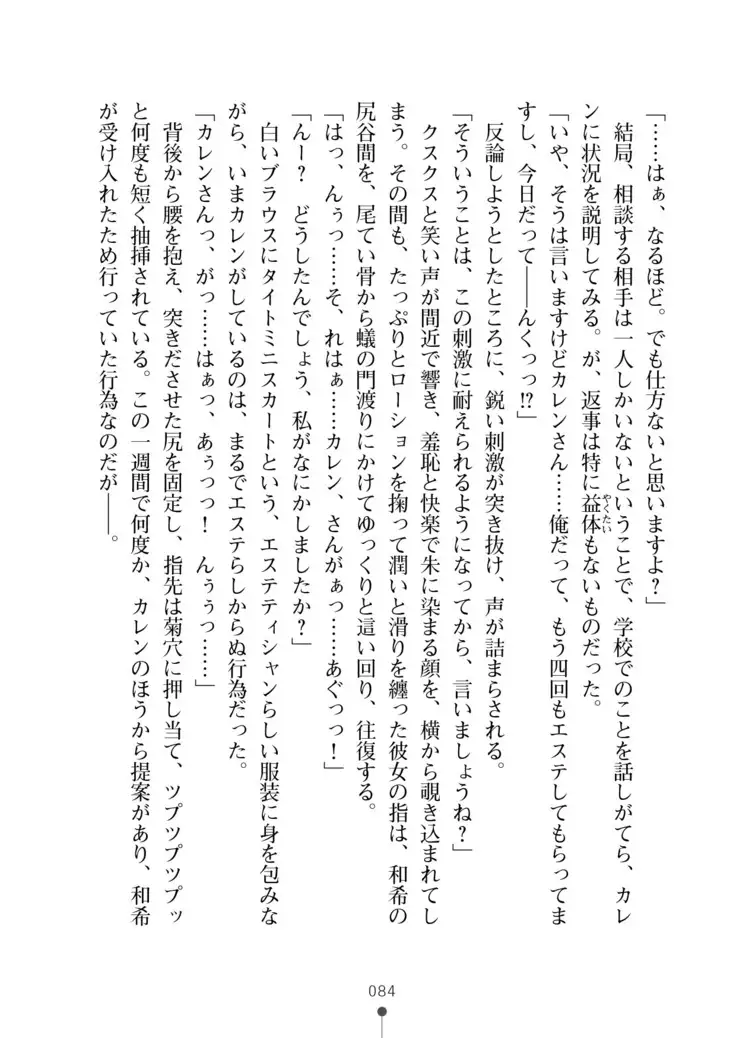 「……はぁ、なるほど。でも仕方ないと思いますよ？」
結局、相談する相手は一人しかいないということで、学校でのことを話しがてら、カレ
ンに状況を説明してみる。が、返事は特に益体やくたいもないものだった。
「いや、そうは言いますけどカレンさん……俺だって、もう四回もエステしてもらってま
すし、今日だって――んくっっ!?」
反論しようとしたところに、鋭い刺激が突き抜け、声が詰まらされる。
「そういうことは、この刺激に耐えられるようになってから、言いましょうね？」
クスクスと笑い声が間近で響き、羞恥と快楽で朱に染まる顔を、横から覗き込まれてし
まう。その間も、たっぷりとローションを掬って潤いと滑りを纏った彼女の指は、和希の
尻谷間を、尾てい骨から蟻の門渡りにかけてゆっくりと這い回り、往復する。
「はっ、んぅっ……そ、れはぁ……カレン、さんがぁっ……あぐっっ！」
「んー？　どうしたんでしょう、私がなにかしましたか？」
白いブラウスにタイトミニスカートという、エステティシャンらしい服装に身を包みな
がら、いまカレンがしているのは、まるでエステらしからぬ行為だった。
「カレンさんっ、がっ……はぁっ、あぅっっ！　んぅぅっ……」
背後から腰を抱え、突きださせた尻を固定し、指先は菊穴に押し当て、ツプツプツプッ
と何度も短く抽挿されている。この一週間で何度か、カレンのほうから提案があり、和希
が受け入れたため行っていた行為なのだが――。
084